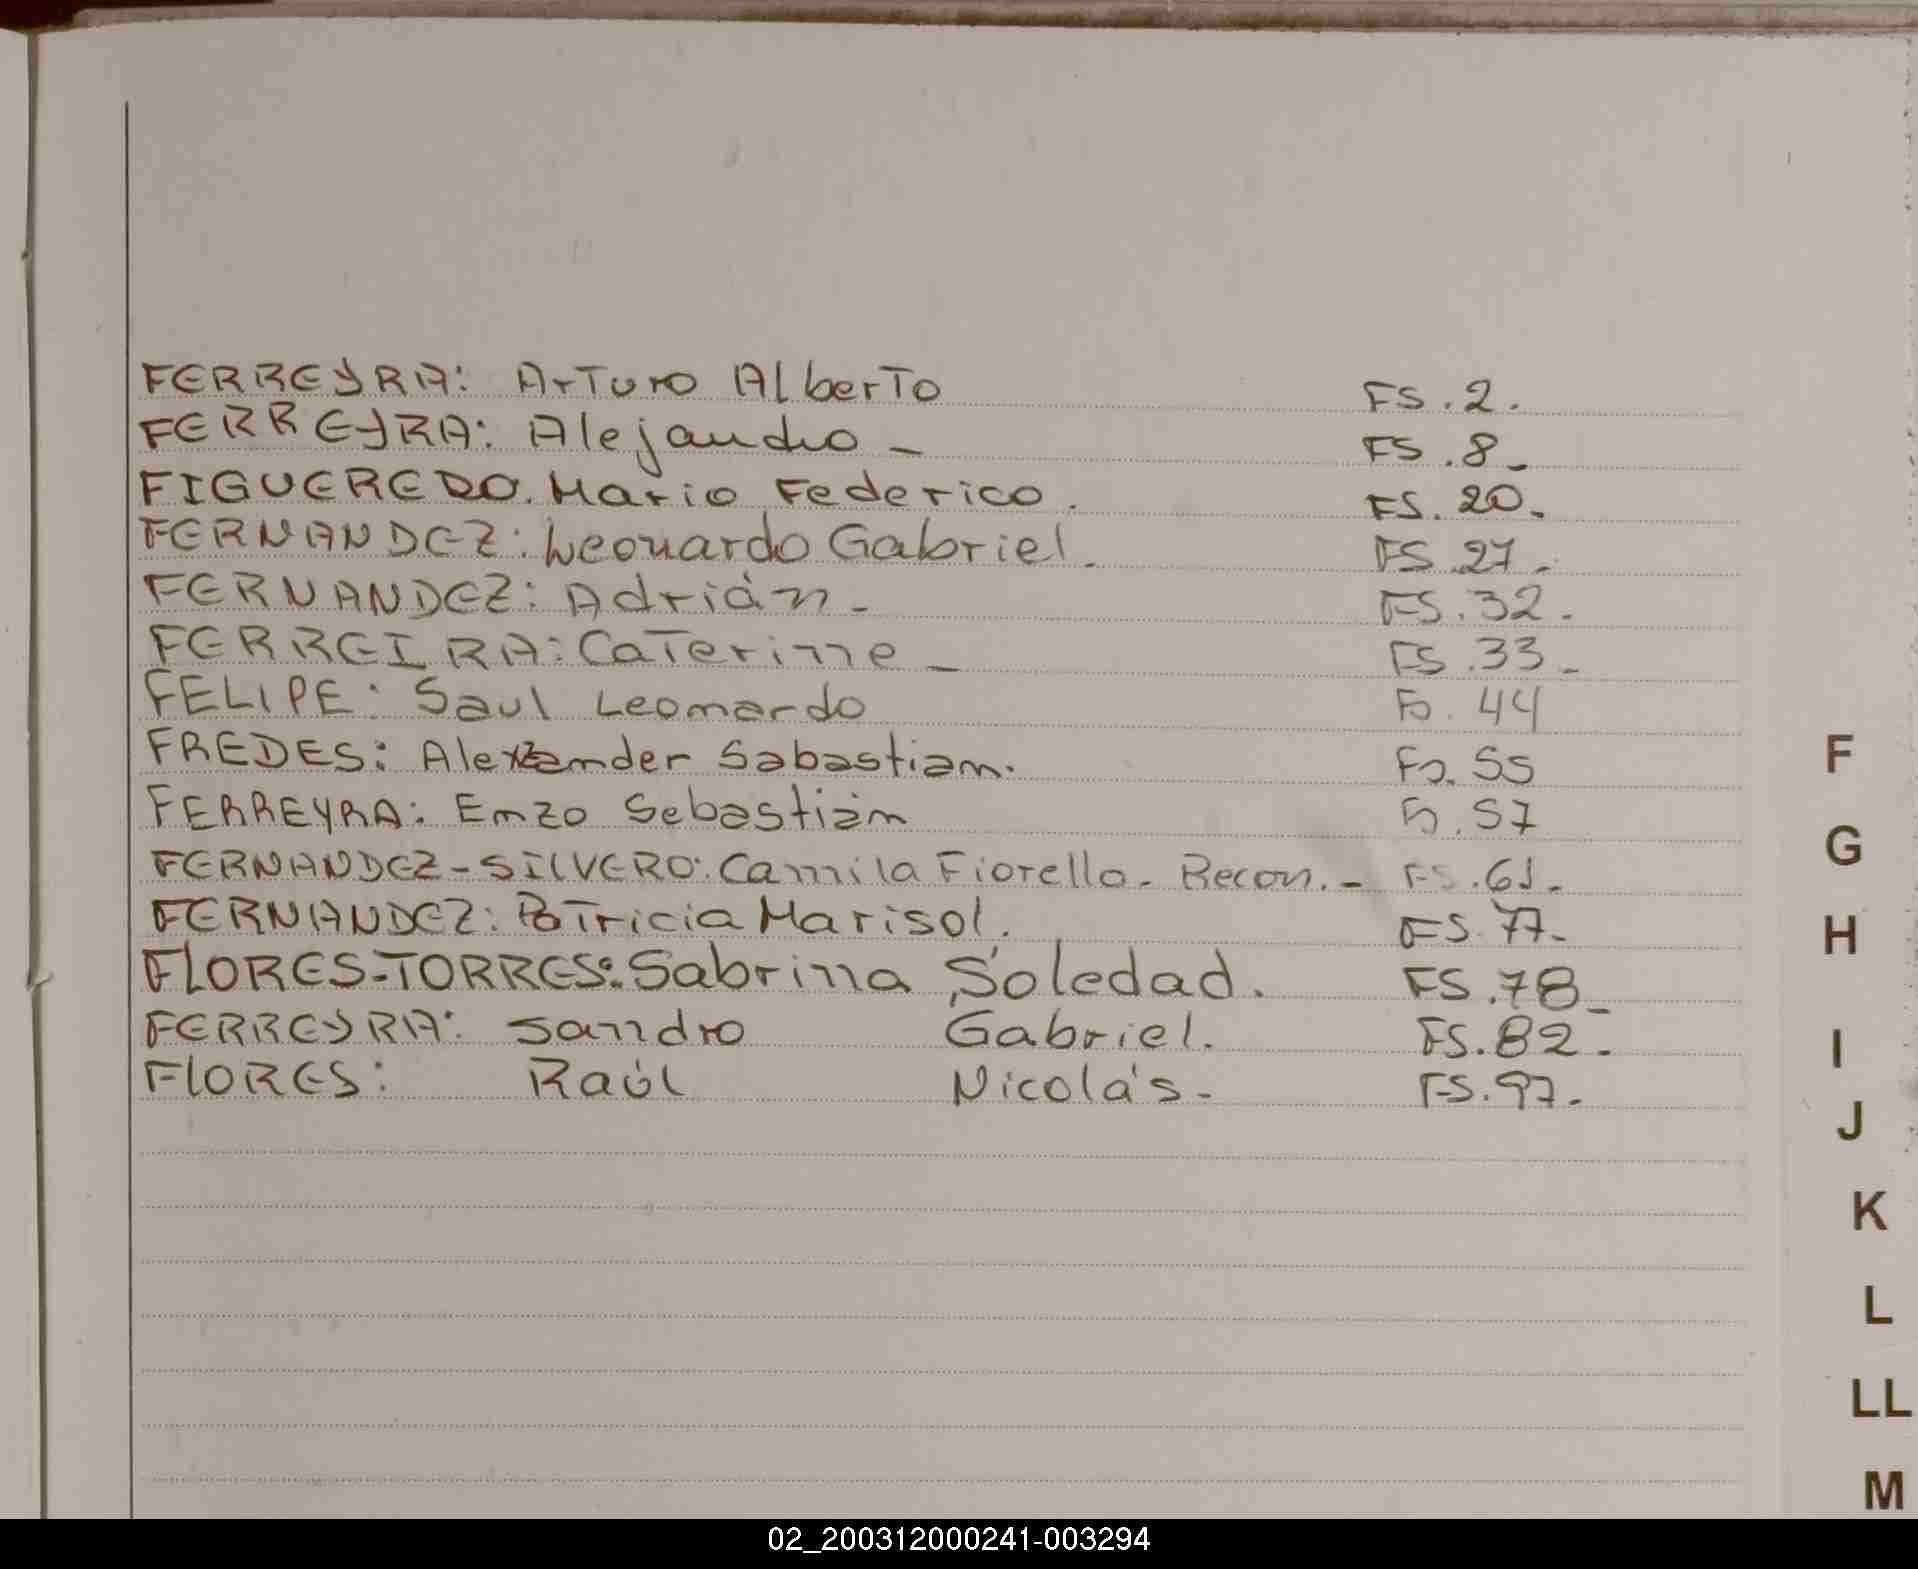 FERREYRA: Arturo Alberto FS. 2.
FERREYRA: Alejandro - FS. 8-
FIGUEREDO. Mario Federico. FS. 20.
FERNANDEZ: Leonardo Gabriel. FS. 27.
FERNANDEZ: Adrián. FS. 32.
FERREIRA: Caterine - FS. 33-
FELIPE: Saul Leonardo Fs. 44
FREDES: Alexander Sabastian. Fs. 55
FERREYRA: Enzo Sebastián Fs. 57
FERNANDEZ-SILVERO: Camila Fiorella. Recon. - FS. 61.
FERNANDEZ: Patricia Marisol. FS. 77.
FLORES-TORRES: Sabrina Soledad. FS. 78-
FERREYRA: Sandro Gabriel. FS. 82.
FLORES: Raúl Nicolás. FS. 97.
F
G
H
I
J
K
L
LL
M
02_200312000241-003294